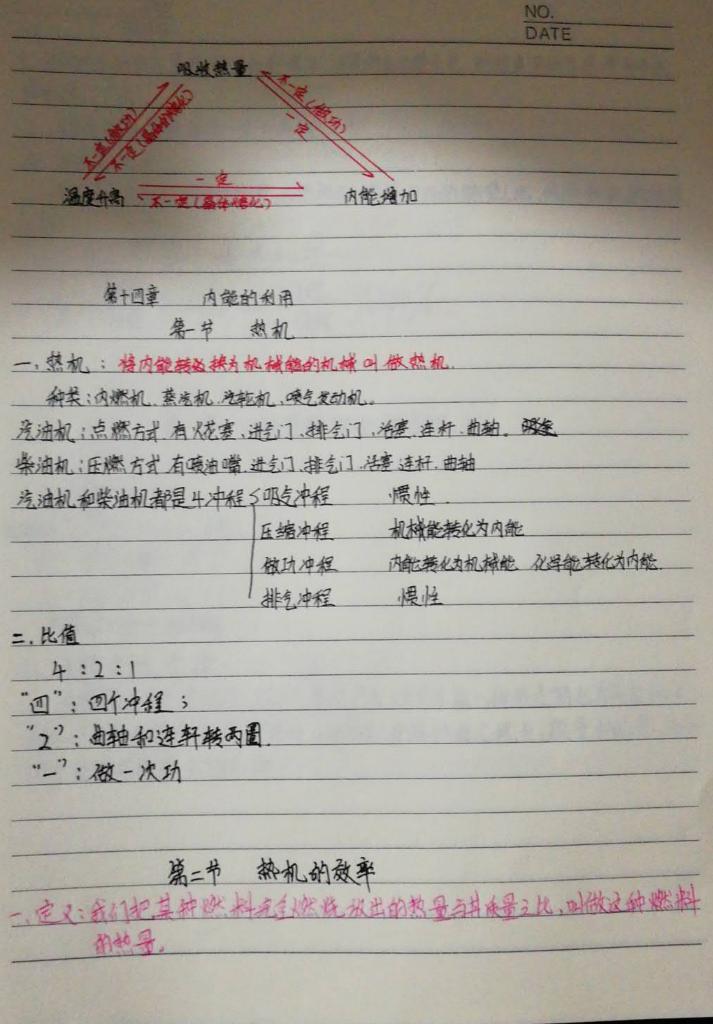 NO.
DATE
吸收热量
不一定(做功)
不一定(晶体熔化)
不一定(做功)
一定
温度升高
一定
不一定(晶体熔化)
内能增加
第十四章 内能的利用
第一节 热机
一、热机：将内能转换为机械能的机械叫做热机.
种类：内燃机、蒸汽机、汽轮机、喷气发动机。
汽油机：点燃方式 有火花塞、进气门、排气门、活塞、连杆、曲轴。
柴油机：压燃方式 有喷油嘴、进气门、排气门、活塞、连杆、曲轴
汽油机和柴油机都是4冲程 吸气冲程 惯性
压缩冲程 机械能转化为内能
做功冲程 内能转化为机械能 化学能转化为内能.
排气冲程 惯性
二、比值
4:2:1
“四”：四个冲程；
“2”：曲轴和连轩转两圈.
“一”：做一次功
第二节 热机的效率
一、定义：我们把某种燃料完全燃烧放出的热量与其质量之比，叫做这种燃料
的热量.